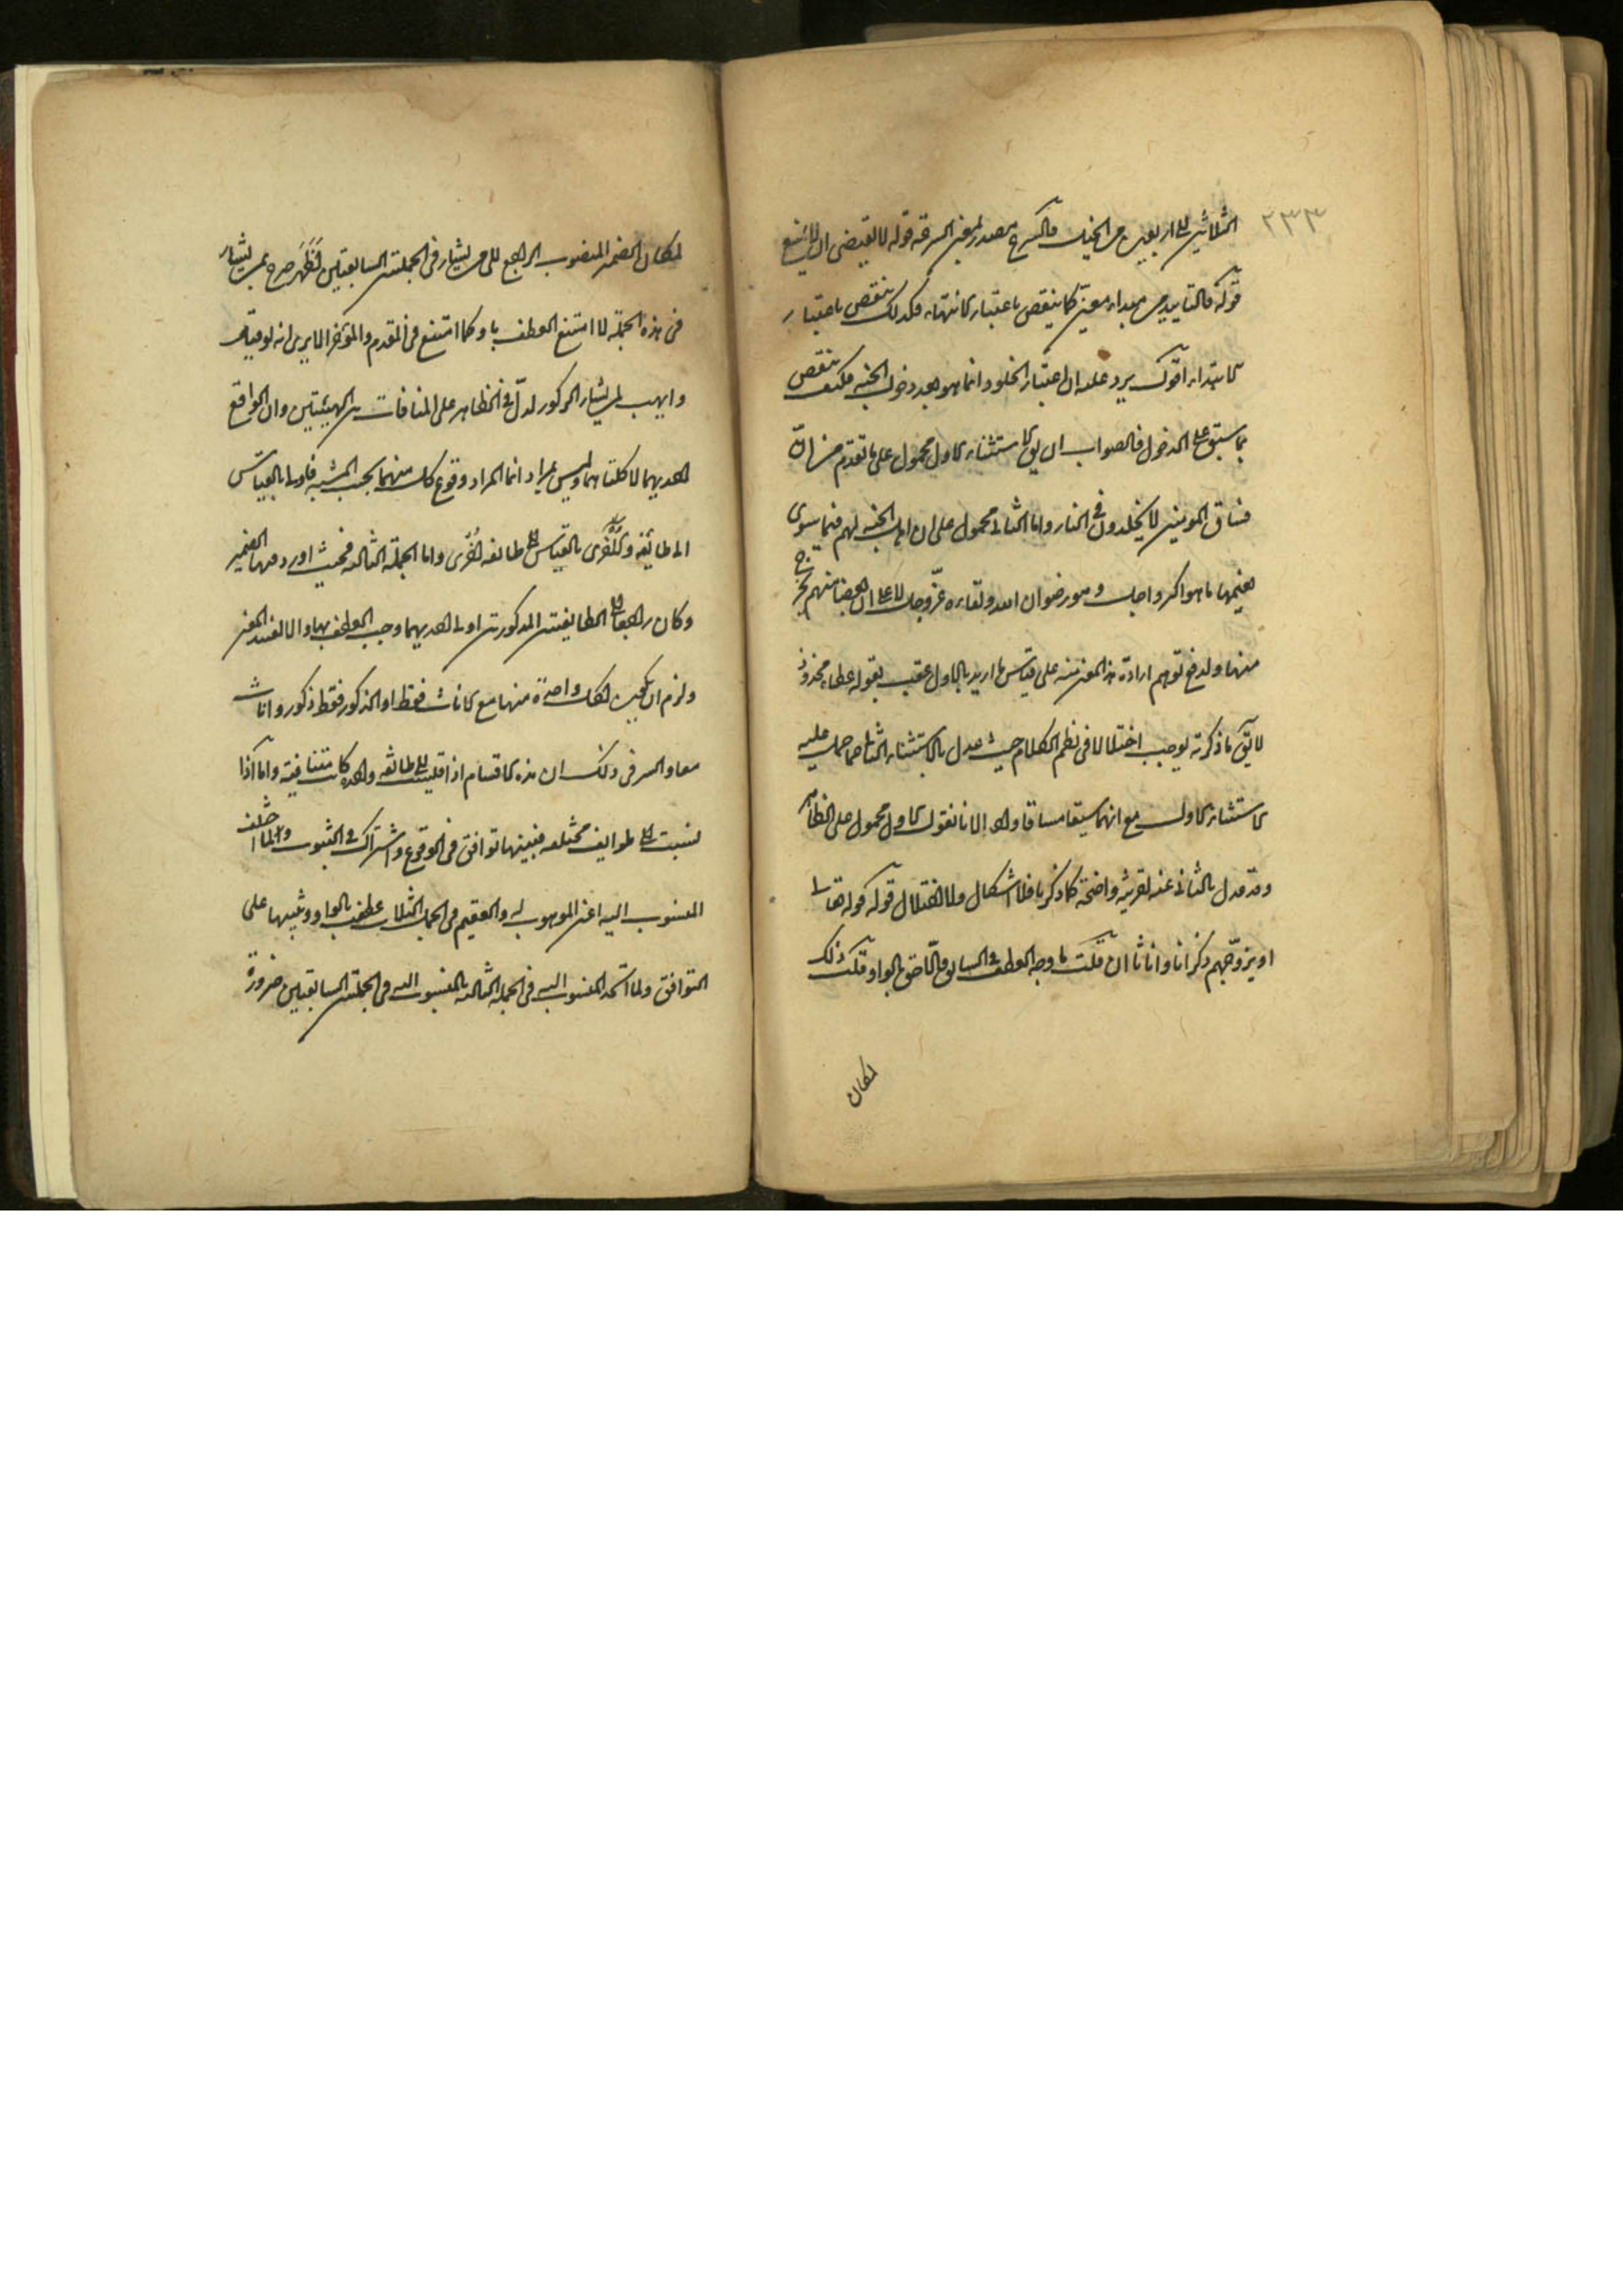 ٢٣٣
الثلاثين الى اربعين من الخيل والسرع مصدر بمعنى السرعة قوله لا يقتضي ان لا يمتنع
قوله فالتابيد من مبداء معين كما ينتقص باعتبار الانتهاء فكذلك ينتقص باعتبار
الابتداء اقول يرد عليه ان اعتبار الخلود انما هو بعد دخول الجنة فكيف ينتقص
بما سبق على الدخول فالصواب ان يق الاستثناء الاول محمول على ما تقدم من ان
فساق المومنين لا يخلدون في النار واما الثاني محمول على ان اهل الجنة لهم فيما سوى
نعيمها ما هو اكبر واجل وهو رضوان الله ولقاءه عز وجل لا على ان بعضا منهم يخرج
منها ولدفع توهم ارادة هذا المعنى منه على قياس ما اريد بالاول عقب بقوله عطاء غير مجذوذ
لا يق ما ذكرته يوجب اختلالا في نظم الكلام حيث عدل بالاستثناء الثاني عما حمل عليه
الاستثناء الاول مع انهما سيقا مساقا واحدا لانا نقول الاول محمول على الظاهر
وقد عدل بالثاني عنه لقرينة واضحة كما ذكر فلا اشكال ولا اختلال قوله قوله تعالى
او يزوجهم ذكرانا واناثا ان قلت ما وجه العطف في السابق واللاحق بالواو قلت ذلك
لمكان
لمكان الضمير المنصوب الراجع الى من يشاء في الجملتين السابقتين فظهر صرح بمن يشاء
في هذه الجملة لا امتنع العطف باو كما امتنع في المقدم والمؤخر الا يرى انه لو قيل
او يهب لمن يشاء الذكور لدل في الظاهر على المنافات بين الهبتين وان الواقع
احديهما لا كلتاهما وليس بمراد انما المراد وقوع كل منهما بحسب المشية فاولا بالقياس
الى طائفة واخرى بالقياس الى طائفة اخرى واما الجملة الثالثة فحيث اورد فيها الضمير
وكان راجعا الى الطائفتين المذكورتين او الى احديهما وجب العطف باو والا لفسد المعنى
ولزم ان يكون لكل واحدة منها مع الاناث فقط او الذكور فقط ذكور واناث
معا والسر في ذلك ان هذه الاقسام اذا قيست الى طائفة واحدة كانت متنافية واما اذا
نسبت الى طوايف مختلفة فبينها توافق في الوقوع واشتراك في الثبوت ولما اختلف
المنسوب اليه اعني الموهوب له والعقيم في الجمل الثلاث عطف بالواو وتنبيها على
التوافق ولما اتحد المنسوب اليه في الجملة الثالثة بالمنسوب اليه في الجملتين السابقتين ضرورة